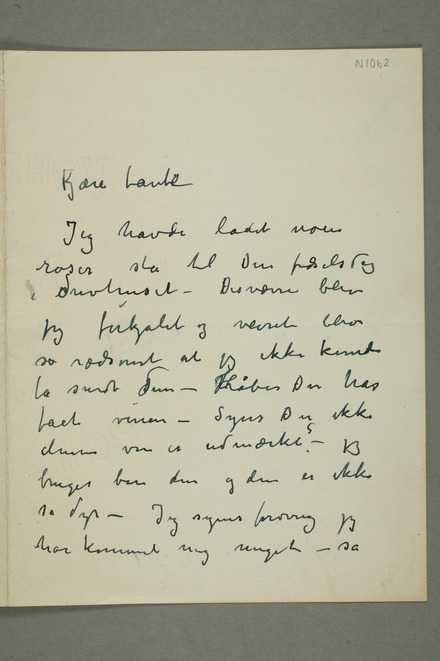 N1062
Kjære tante
Jeg havde ladet noen
roser sta til Din fødselsdag
i Drivhuset – Desværre blev
jeg forkjølet og veiret blev
so rædsomt at jeg ikke kunde
fa sendt dem – Håber Du har
faet vinen – Synes Du ikke
denne vin er udmærket? – jeg
bruger bare den og den er ikke
sa dyr – Jeg synes forøvrig jeg
har kommet mig meget – sa